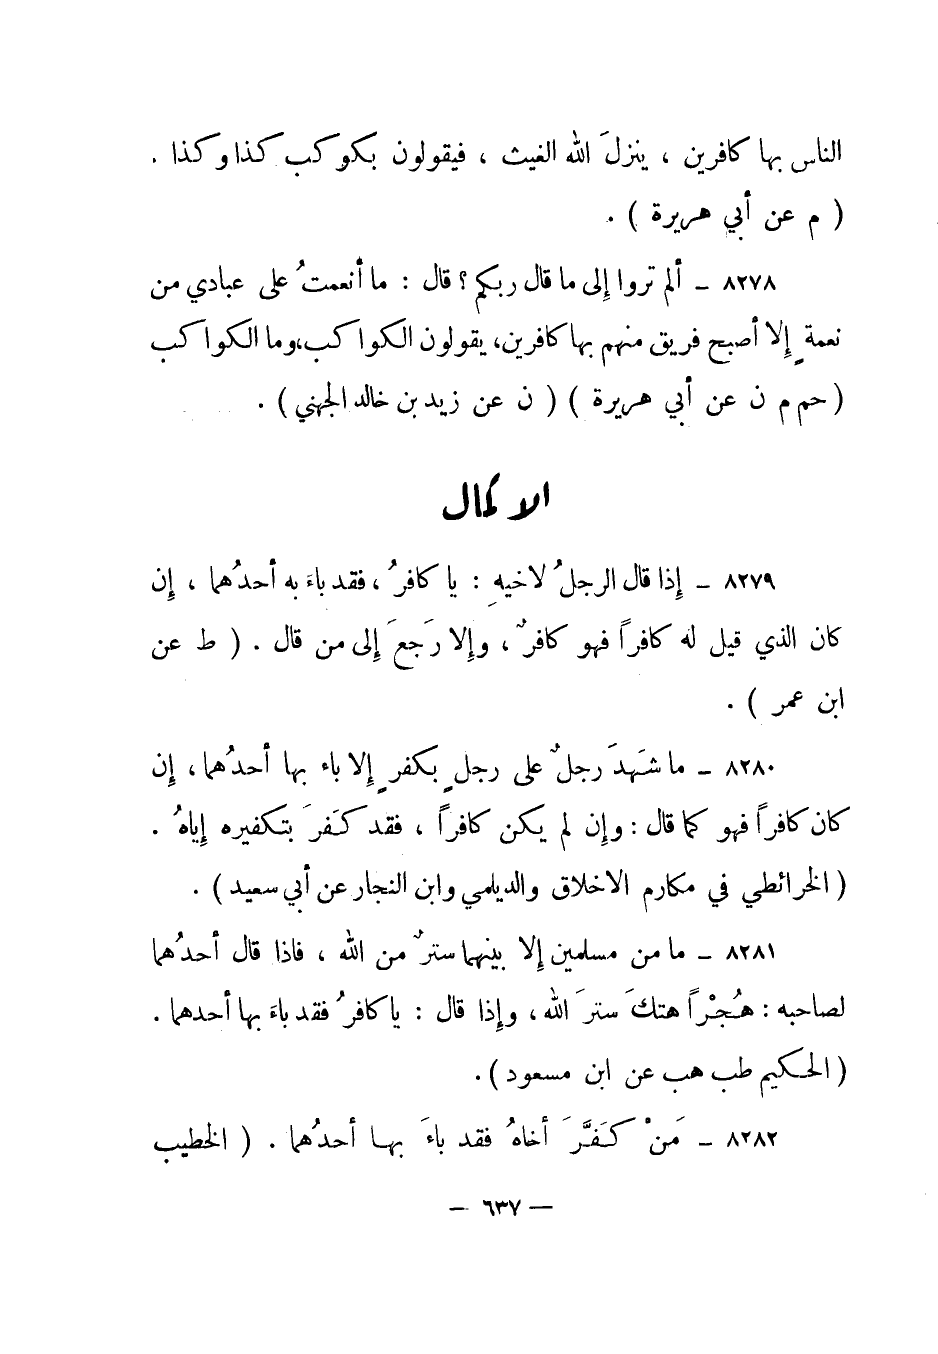 الناس بها كافرين ، ينزلَ الله الغيث ، فيقولون بكوكب كذا وكذا .
( م عن أبي هريرة ) .
٨٢٧٨ – ألم تروا إلى ما قال ربكم ؟ قال : ما أنعمتُ على عبادي من
نعمةٍ إلا أصبح فريق منهم بها كافرين، يقولون الكواكب، وما الكواكب
( حم م ن عن أبي هريرة ) ( ن عن زيد بن خالد الجهني ) .
الاكمال
٨٢٧٩ – إذا قال الرجلُ لاخيهِ : يا كافرُ ، فقد باءَ به أحدُهما ، إن
كان الذي قيل له كافراً فهو كافرٌ ، وإلا رَجعَ إلى من قال . ( ط عن
ابن عمر ) .
٨٢٨٠ – ما شَهِدَ رجلٌ على رجلٍ بكفرٍ إلا باء بها أحدُهما، إن
كان كافراً فهو كما قال : وإن لم يكن كافراً ، فقد كَفرَ بتكفيره إياهُ .
( الخرائطي في مكارم الاخلاق والديلمي وابن النجار عن أبي سعيد ) .
٨٢٨١ – ما من مسلمين إلا بينهما سترٌ من الله ، فاذا قال أحدُهما
لصاحبه : هُجْراً هتكَ سترَ الله، وإذا قال : يا كافرُ فقد باءَ بها أحدهما .
( الحكيم طب هب عن ابن مسعود ) .
٨٢٨٢ – مَنْ كَفَّرَ أخاهُ فقد باءَ بها أحدُهما . ( الخطيب
— ٦٣٧ —